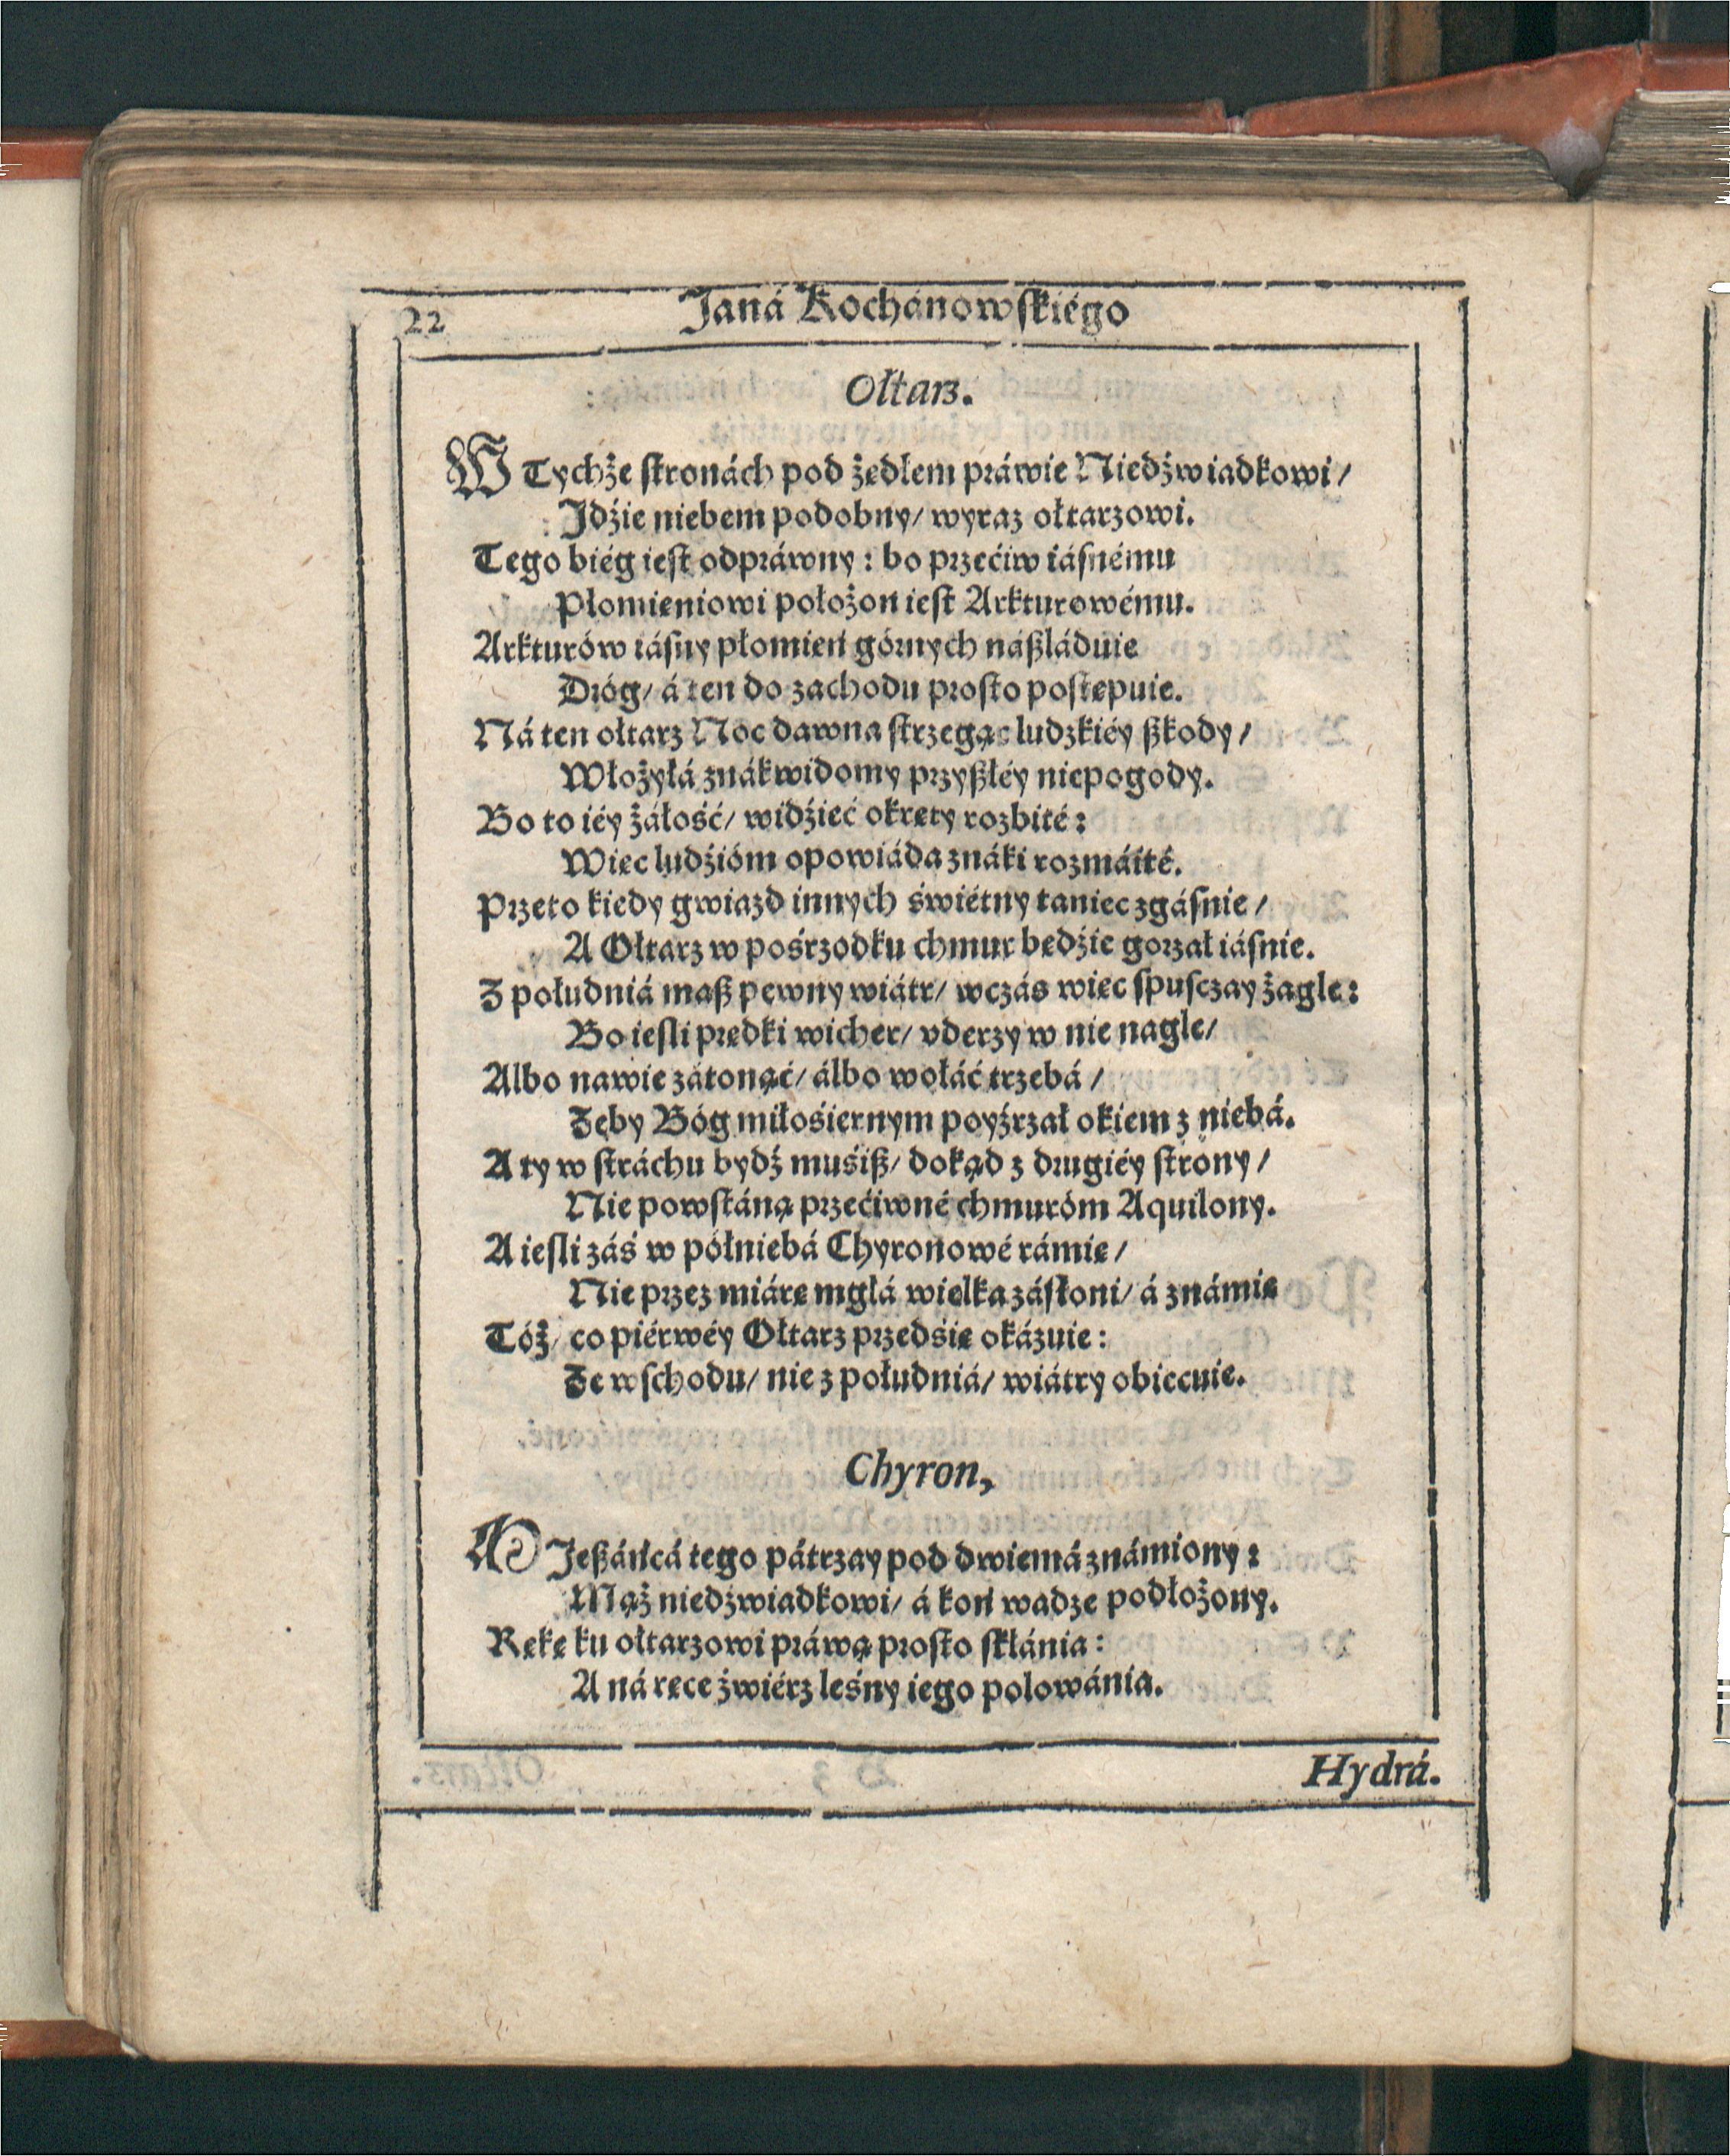 22
Janá Kochánowſkiégo
Ołtarz.
W Tychże ſtronách pod żędłem práwie Niedźwiadkowi/
Jdźie niebem podobny/ wyraz ołtarzowi.
Tego biég ieſt odpráwny: bo przećiw iáſnému
Płomieniowi położon ieſt Arkturowému.
Arkturów iáſny płomień górnych náßláduie
Dróg/ á ten do zachodu proſto poſtępuie.
Ná ten ołtarz Noc dawna ſtrzegąc ludzkiéy ßkody/
Włożyłá znák widomy przyßłéy niepogody.
Bo to iéy żáłość/ widźieć okręty rozbité:
Więc ludźióm opowiáda znáki rozmáité.
Przeto kiedy gwiazd innych świétny taniec zgáſnie/
A Ołtarz w pośrzodku chmur będźie gorzał iáſnie.
Z południá maß pewny wiátr/ wczás więc ſpuſczay żagle:
Bo ieſli prędki wicher/ vderzy w nie nagle/
Albo nawie zátonąć/ álbo wołáć trzebá/
Żęby Bóg miłośiernym poyźrzał okiem z niebá.
A ty w ſtráchu bydź muśiß/ dokąd z drugiéy ſtrony/
Nie powſtáną przećiwné chmuróm Aquilony.
A ieſli záś w półniebá Chyronowé rámię/
Nie przez miárę mgłá wielka záſłoni/ á známię
Tóż/ co piérwéy Ołtarz przedśię okázuie:
Że wſchodu/ nie z południá/ wiátry obiecuie.
Chyron,
A Jeßáńcá tego pátrzay pod dwiemá známiony:
Mąż niedźwiadkowi/ á koń wadze podłożony.
Rękę ku ołtarzowi práwą proſto ſkłánia:
A ná ręce źwiérz leśny iego polowánia.
Hydrá.